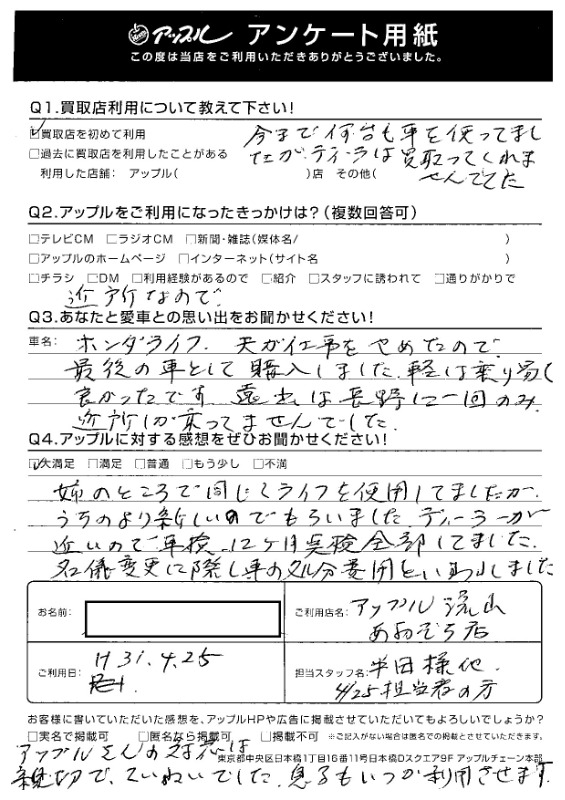 アップル アンケート用紙
この度は当店をご利用いただきありがとうございました。
Q1.買取店利用について教えて下さい!
☑買取店を初めて利用
□過去に買取店を利用したことがある
利用した店舗: アップル( )店 その他( )
今まで何台も車を使ってまし
たがディーラは買取ってくれま
せんでした
Q2.アップルをご利用になったきっかけは?(複数回答可)
□テレビCM □ラジオCM □新聞・雑誌(媒体名/ )
□アップルのホームページ □インターネット(サイト名 )
□チラシ □DM □利用経験があるので □紹介 □スタッフに誘われて □通りがかりで
近所なので
Q3.あなたと愛車との思い出をお聞かせください!
車名: ホンダライフ. 夫が仕事をやめたので
最後の車として購入しました.軽は乗り易く
良かったです 遠出は長野に一回のみ.
近所しか乗ってませんでした.
Q4.アップルに対する感想をぜひお聞かせください!
☑大満足 □満足 □普通 □もう少し □不満
姉のところで同じくライフを使用してましたが.
うちのより新しいのでもらいました ディーラーが
近いので車検.12ヶ月点検全部してました.
名儀変更に際し車の処分費用を しました
お名前:
ご利用店名: アップル流山
おおぞら店
ご利用日: H31.4.25
担当スタッフ名: 半田様他
4/25担当者の方
お客様に書いていただいた感想を、アップルHPや広告に掲載させていただいてもよろしいでしょうか?
□実名で掲載可 □匿名なら掲載可 □掲載不可 ※ご記入がない場合は匿名での掲載とさせていただきます。
アップルさんの対応は
東京都中央区日本橋1丁目16番11号日本橋Dスクエア9F アップルチェーン本部
親切で、ていねいでした.息子もいつか利用させます.